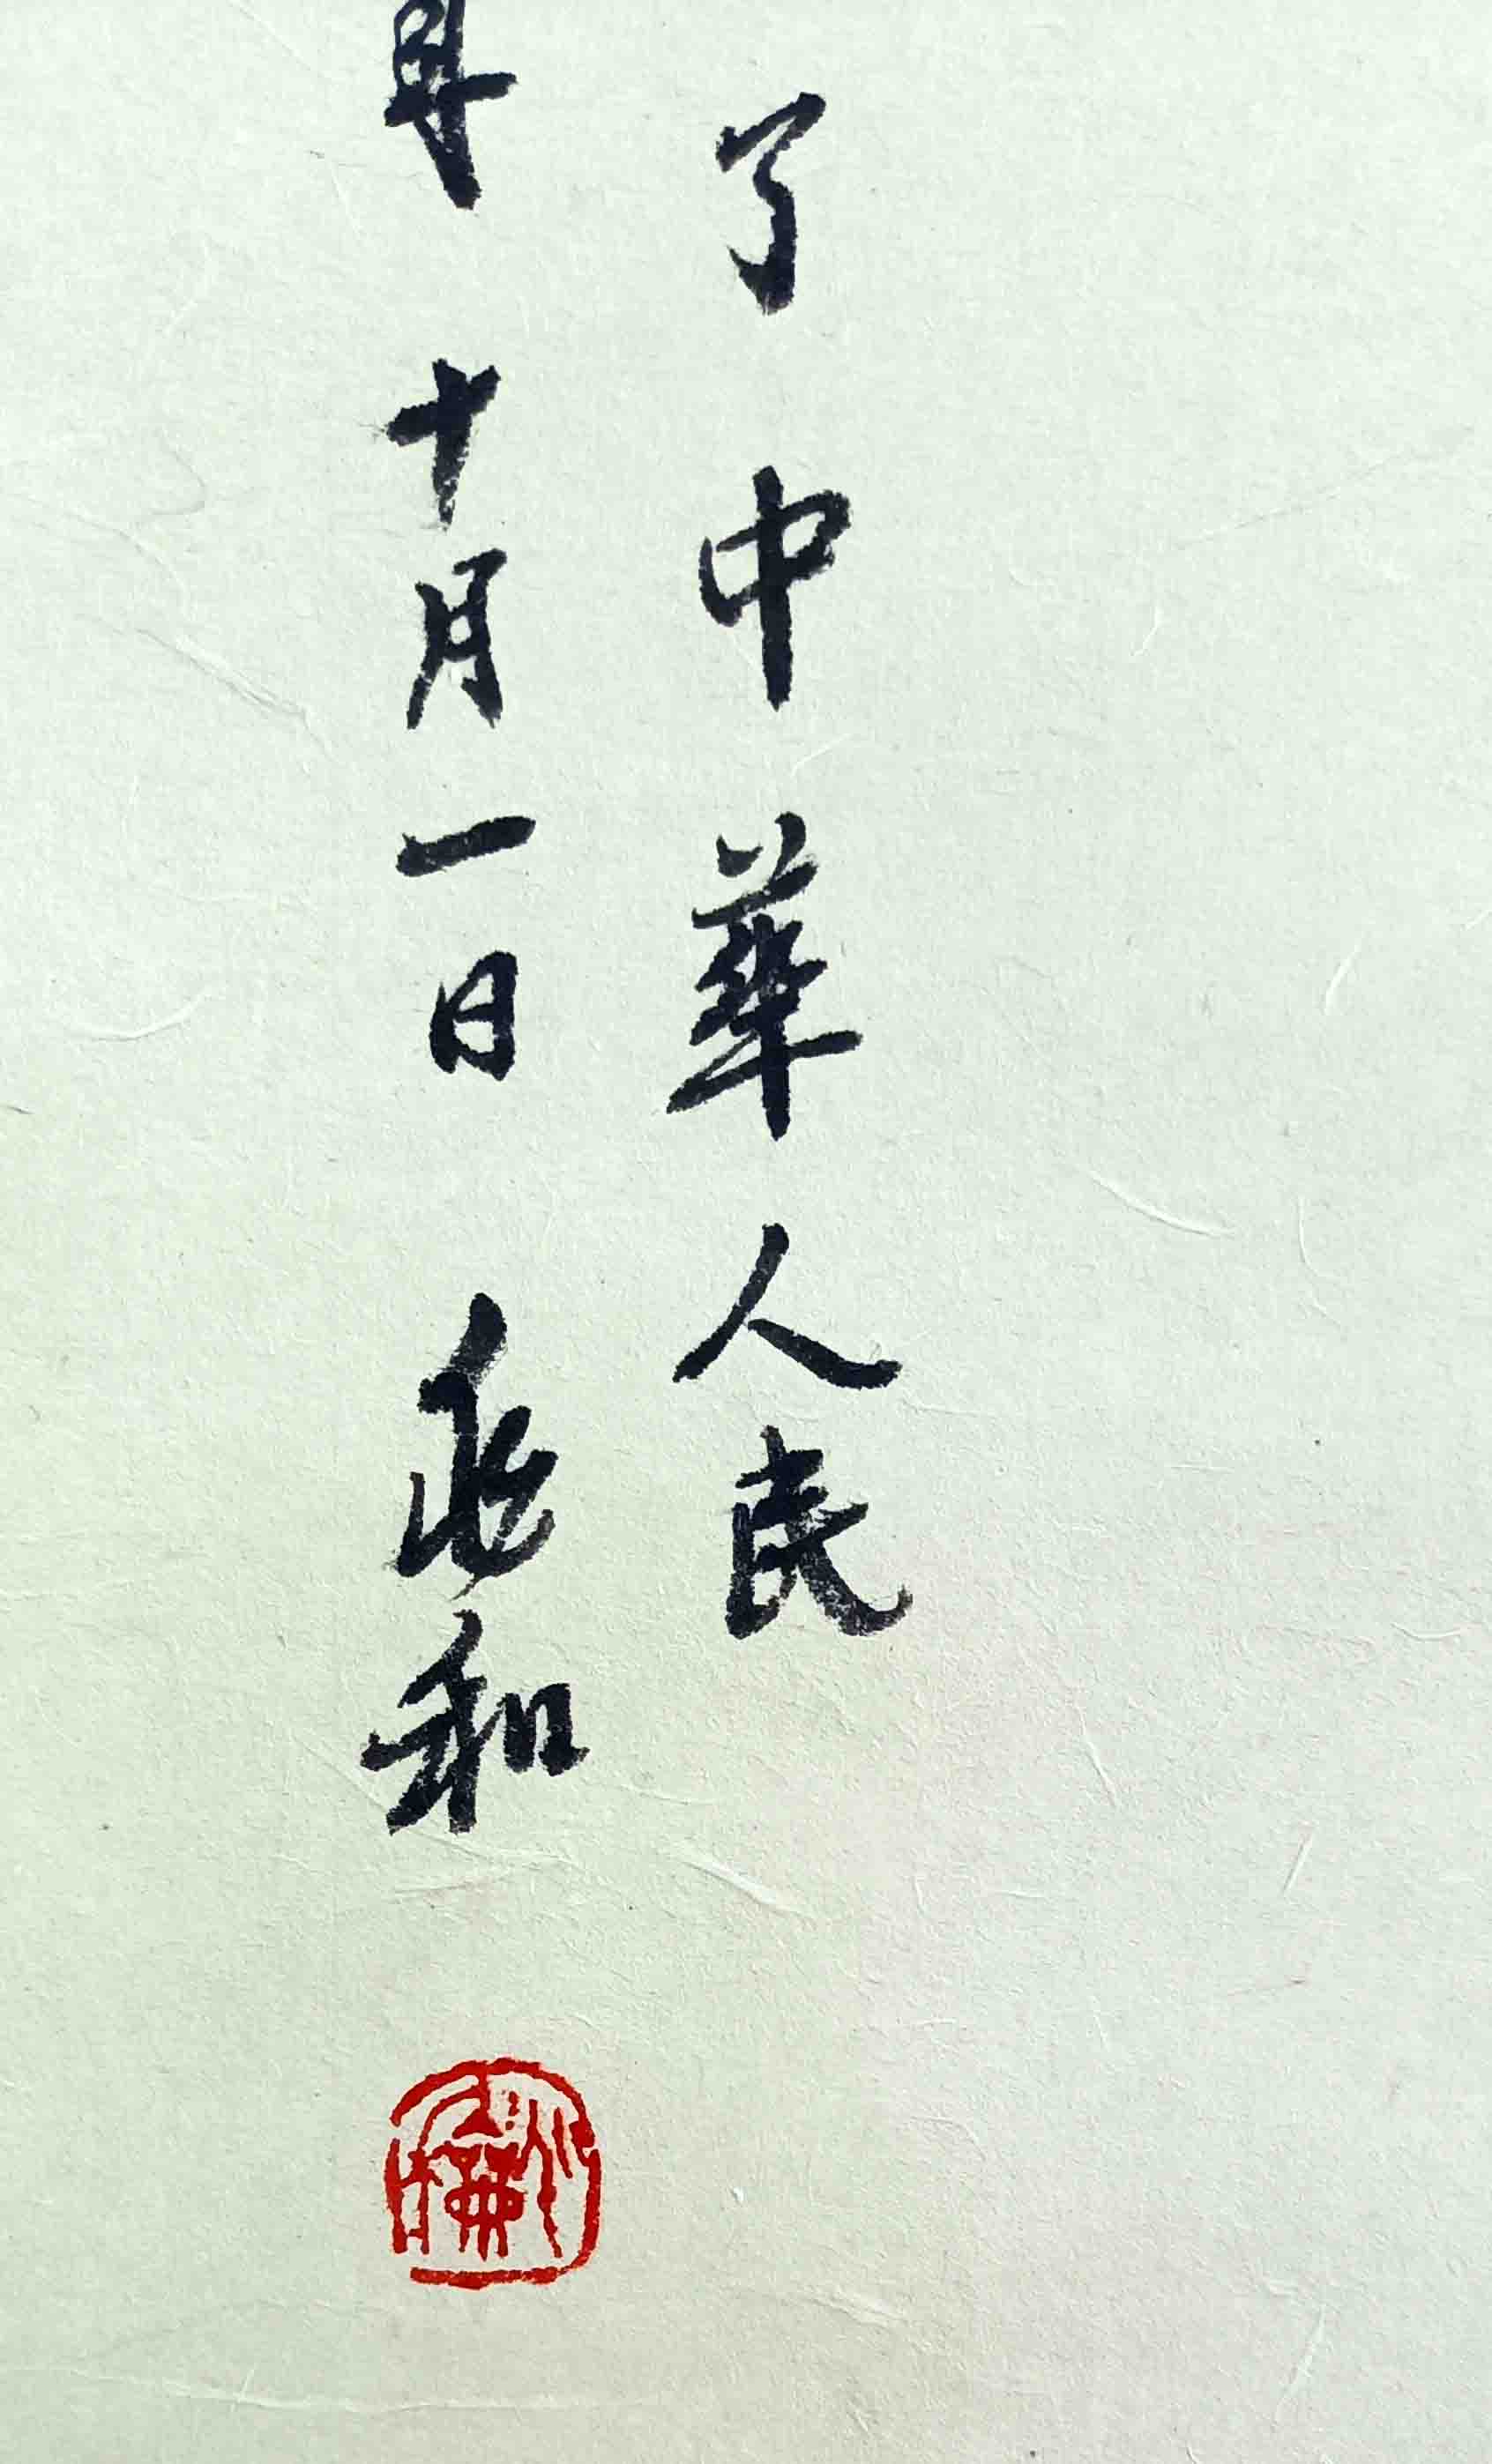 了中華人民
年十月一日 和